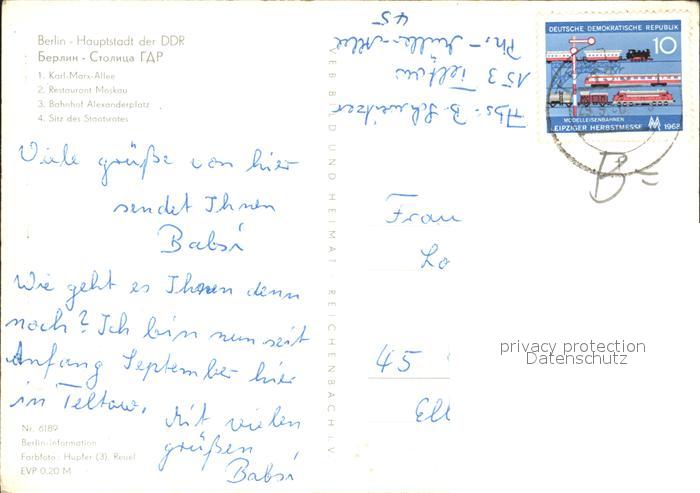 Berlin - Hauptstadt der DDR
Берлин - Столица ГДР
1. Karl-Marx-Allee
2. Restaurant Moskau
3. Bahnhof Alexanderplatz
4. Sitz des Staatsrates
Viele grüße von hier
sendet Ihnen
Babsi
Wie geht es Ihnen denn
noch? Ich bin nun seit
Anfang September hier
in Teltow.
Mit vielen
grüßen
Babsi
Nr. 6189
Berlin-Information
Farbfoto: Hupfer (3), Reuel
EVP 0.20 M
VEB BILD UND HEIMAT · REICHENBACH I. V.
Abs.: B. Schweitzer
153 Teltow
Ph.-Müller-Allee
45
DEUTSCHE DEMOKRATISCHE REPUBLIK
10
MODELLEISENBAHNEN
LEIPZIGER HERBSTMESSE MM 1968
Frau
Lo
45
Ell
privacy protection
Datenschutz